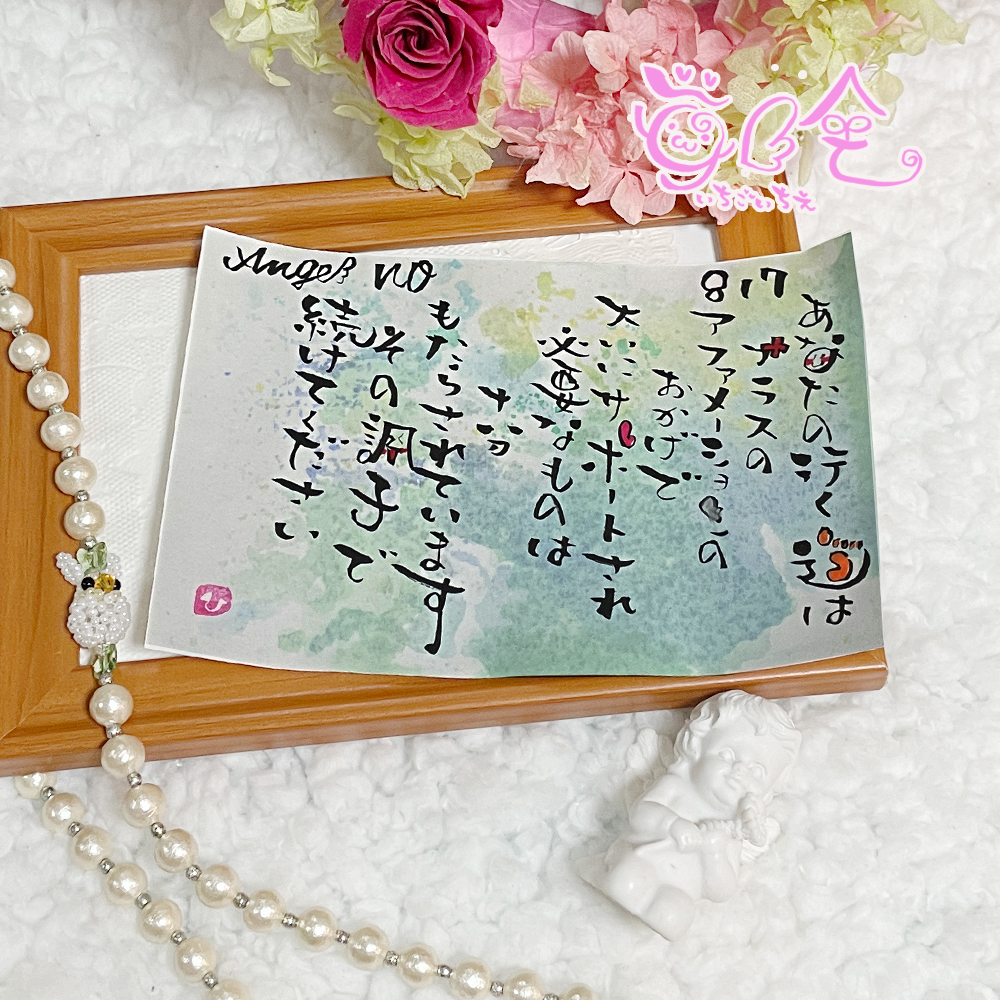 いちごいちえ
Angel NO
817
あなたの行く道は
プラスの
アファメーションの
おかげで
大いにサポートされ
必要なものは
十分
もたらされています
その調子で
続けてください